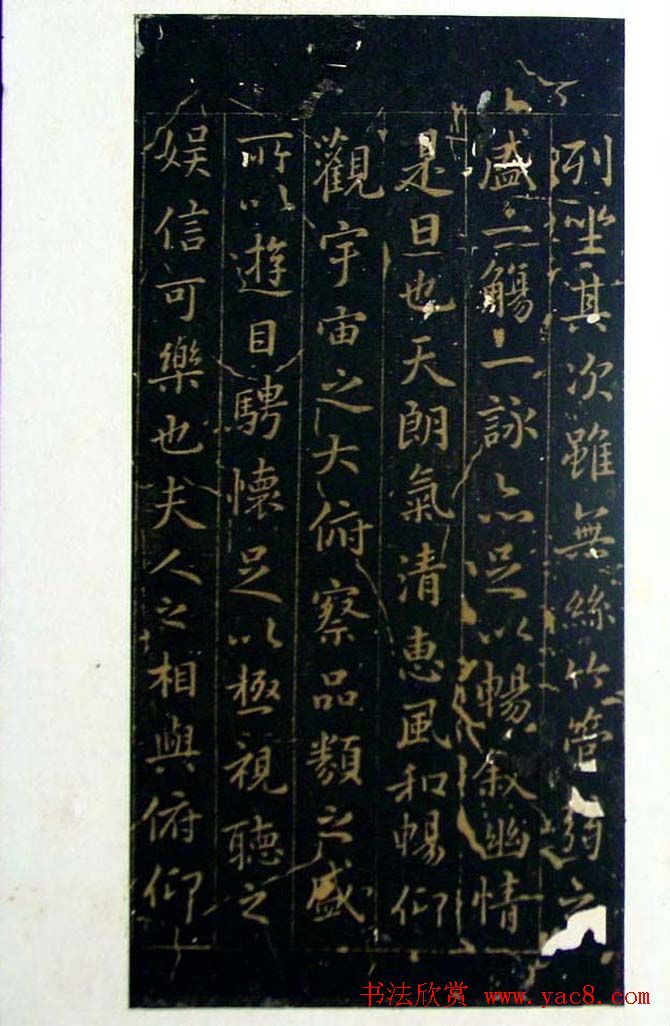 列坐其次雖無絲竹管之
盛一觴一詠亦足以暢敘幽情
是日也天朗氣清惠風和暢仰
觀宇宙之大俯察品類之盛
所以遊目騁懷足以極視聽之
娛信可樂也夫人之相與俯仰
书法欣赏 www.yac8.com